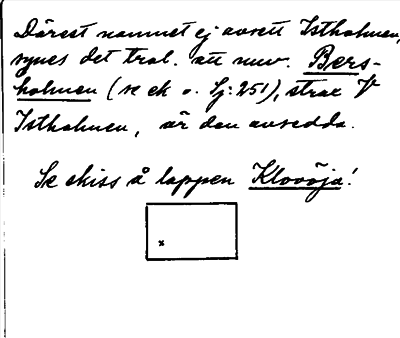 Därest namnet ej avsett Istholmen,
synes det trol. att nuv. Bers-
holmen (se ek o. Lj:251), strax V
Istholmen, är den avsedda.
Se skiss å lappen Klovöja!
x